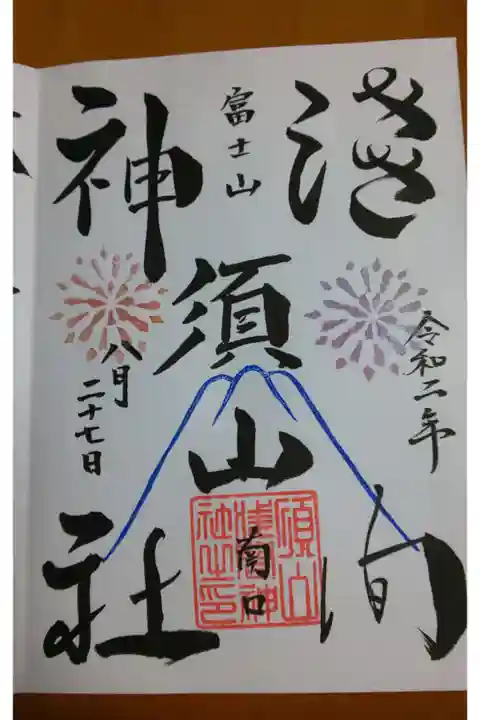 淺間
令和二年
富士山
須山
菊口
須山
淺間神
社之印
神社
八月
二十七日